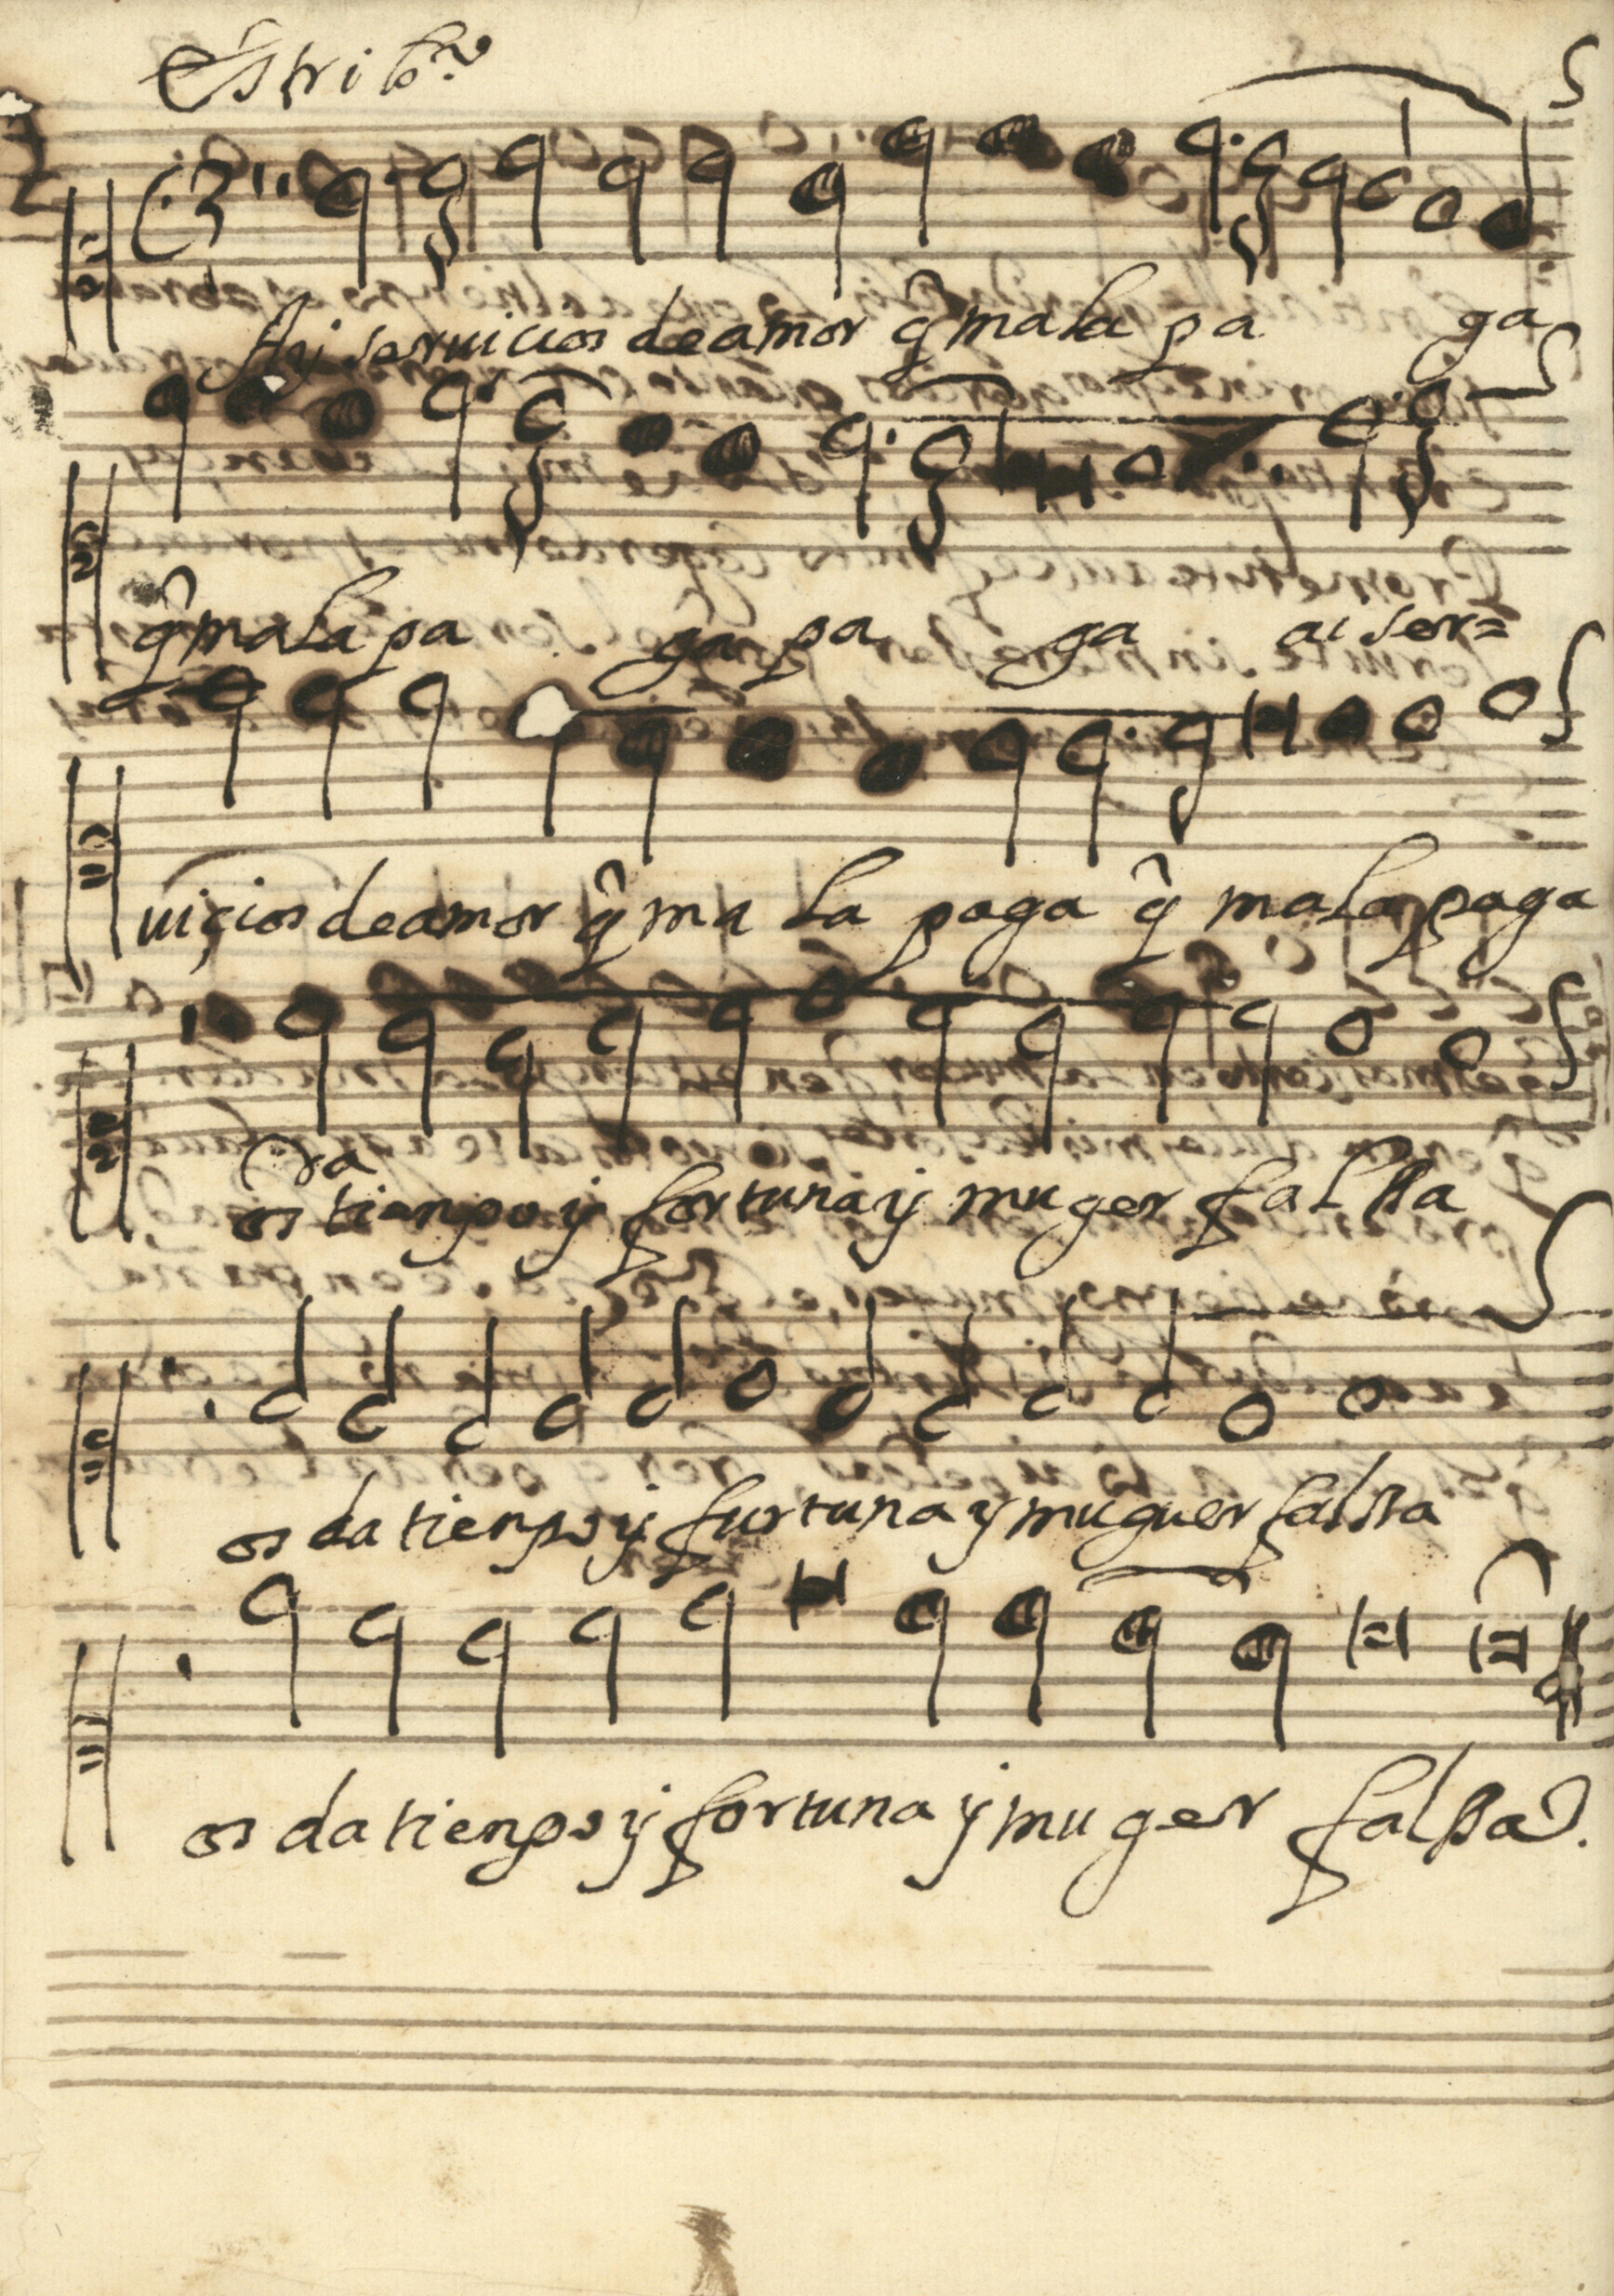 Estribo
Ay seruicios de amor q̃ mala pa ga
q̃ mala pa ga pa ga ai ser=
uiçios de amor q̃ ma la paga q̃ mala paga
da
os tienpo y fortuna y muger falssa
os da tienpo y furtuna y muguer falssa
os da tienpo y fortuna y muger falssa.